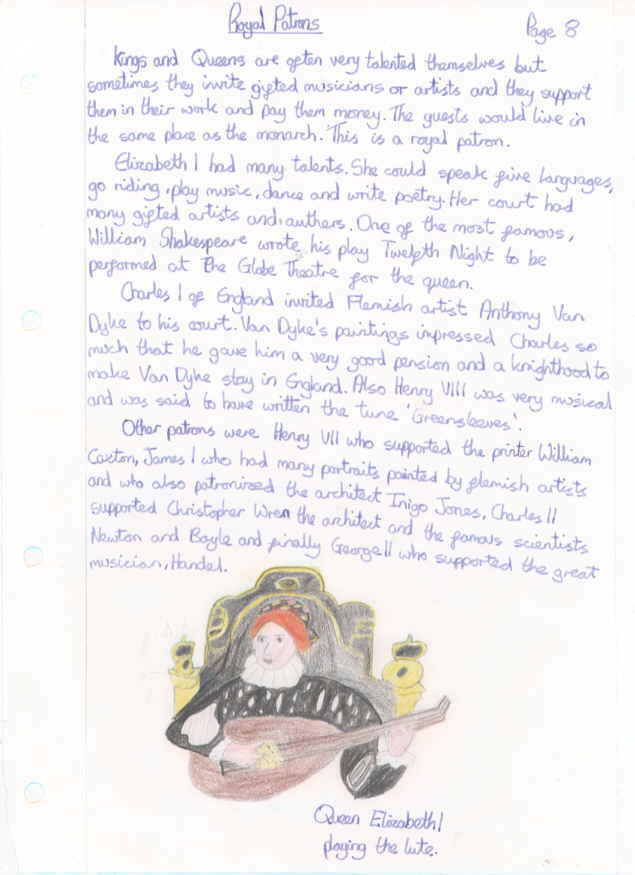 Royal Patrons
Page 8
Kings and Queens are often very talented themselves but
sometimes they invite gifted musicians or artists and they support
them in their work and pay them money. The guests would live in
the same place as the monarch. This is a royal patron.
Elizabeth I had many talents. She could speak five languages,
go riding, play music, dance and write poetry. Her court had
many gifted artists and authers. One of the most famous,
William Shakespeare wrote his play Twelfth Night to be
performed at The Globe Theatre for the queen.
Charles I of England invited Flemish artist Anthony Van
Dyke to his court. Van Dyke's paintings inpressed Charles so
much that he gave him a very good pension and a knighthood to
make Van Dyke stay in England. Also Henry VIII was very musical
and was said to have written the tune 'Greensleeves'.
Other patrons were Henry VII who supported the printer William
Caxton, James I who had many portraits painted by flemish artists
and who also patronised the architect Inigo Jones, Charles II
supported Christopher Wren the architect and the famous scientists
Newton and Boyle and finally George II who supported the great
musician, Handel.
Queen Elizabeth I
playing the lute.